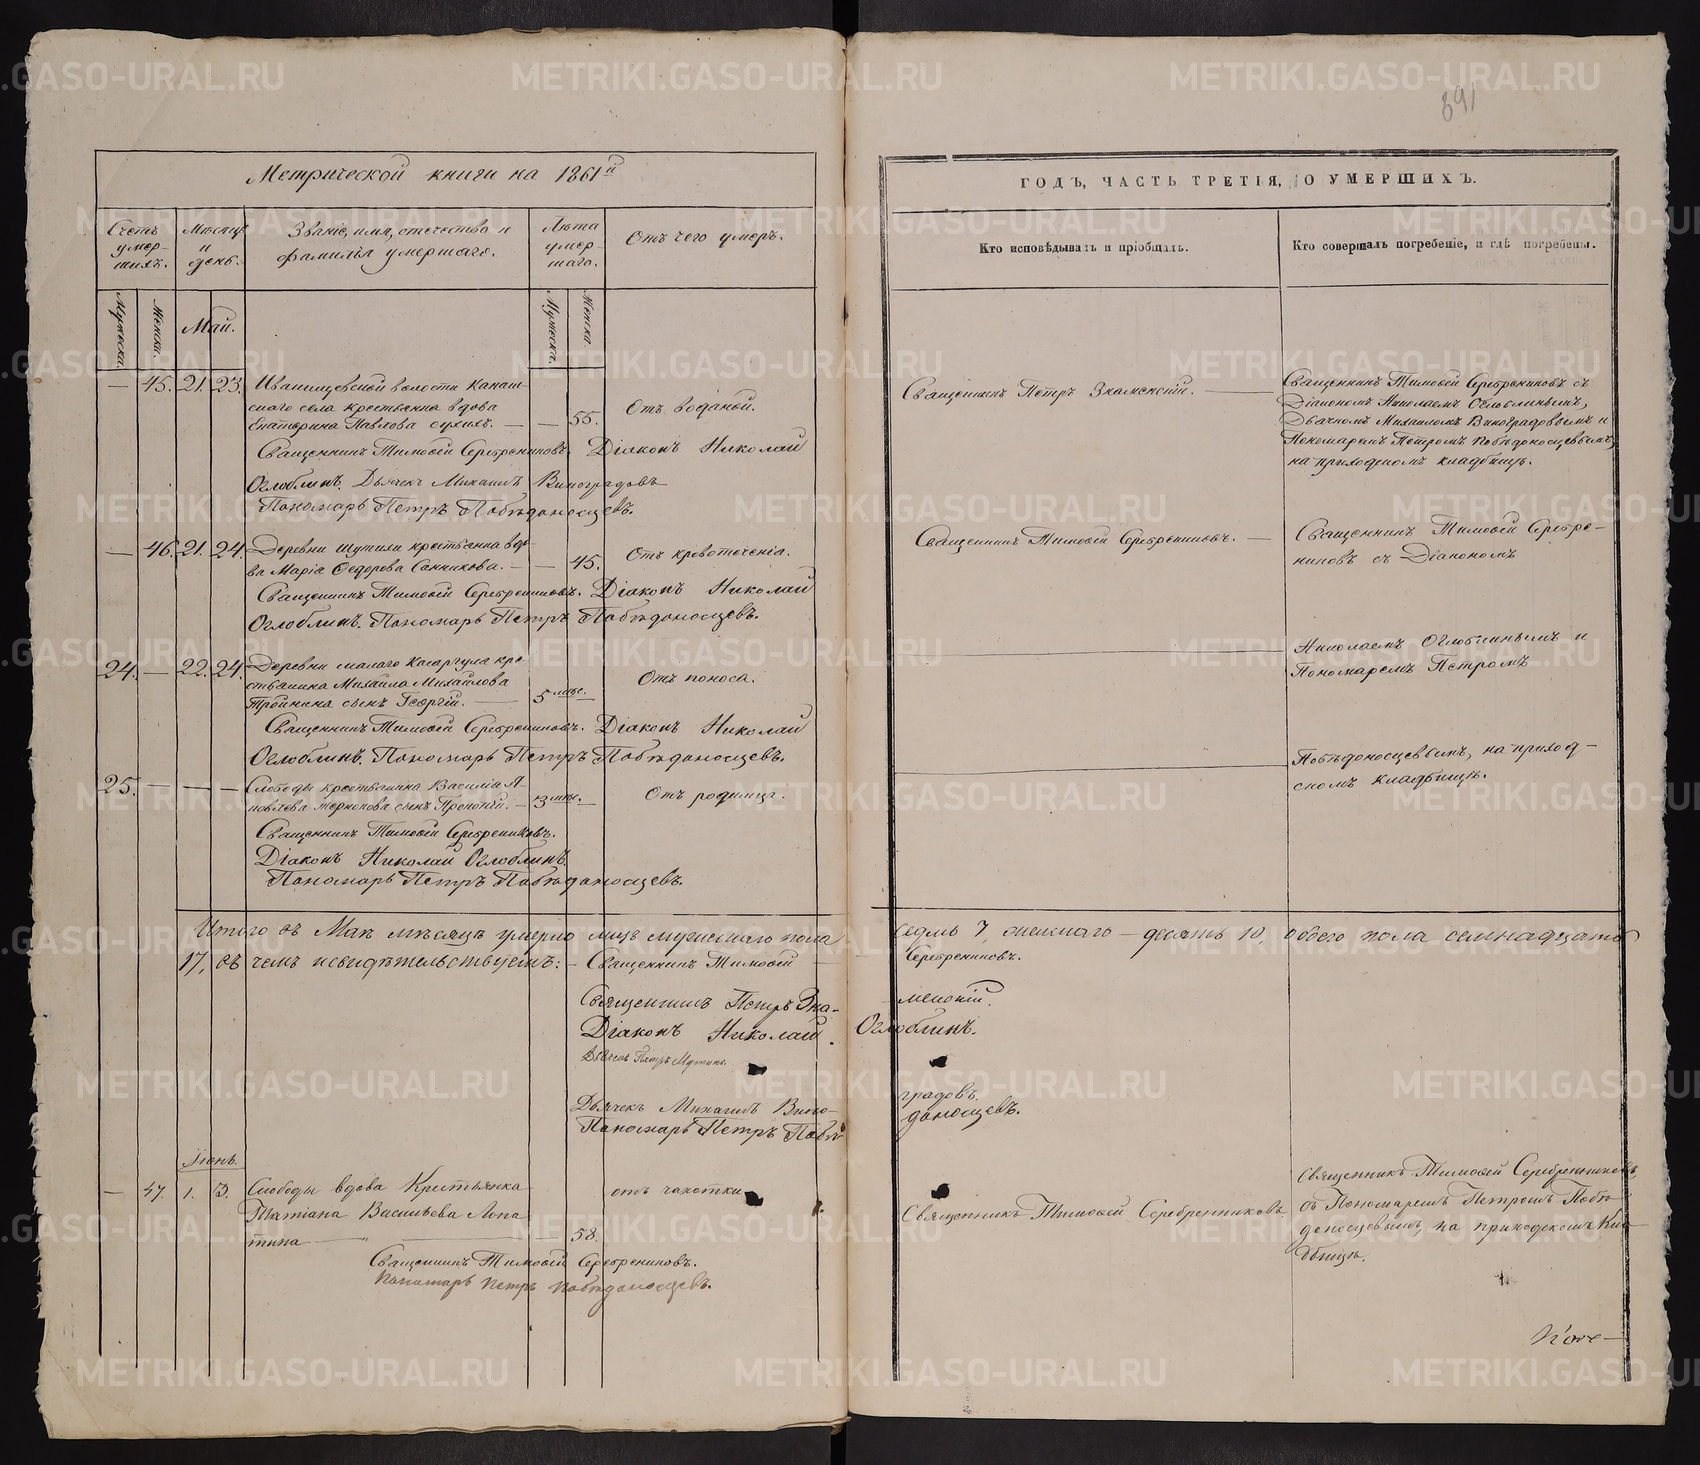 891
Метрической книги на 1861й
ГОДЪ, ЧАСТЬ ТРЕТІЯ, О УМЕРШИХЪ.
Счетъ умер-
шихъ.
Мѣсяцъ
и
день.
Званіе, имя, отчество и
фамилія умершаго.
Лѣта
умер-
шаго.
Отъ чего умеръ.
Кто исповѣдывалъ и пріобщалъ.
Кто совершалъ погребеніе, и гдѣ погребены.
Мужеска.
Женска.
Май.
Мужеска.
Женска.
— 45. 21. 23. Иванищевской волости Канаш-
скаго села крестьянка вдова
Екатерина Павлова Сухихъ. — — 55. Отъ водяной.
Священникъ Петръ Знаменскій.
Священникъ Тимофей Серебрениковъ съ
Діакономъ Николаемъ Оглоблинымъ,
Дьячкомъ Михаиломъ Виноградовымъ и
Пономаремъ Петромъ Побѣдоносцевымъ,
на приходскомъ кладбищѣ.
Священникъ Тимофей Серебрениковъ. Діаконъ Николай
Оглоблинъ. Дьячекъ Михаилъ Виноградовъ
Пономарь Петръ Побѣдоносцевъ.
— 46. 21. 24. Деревни крестьянка вдо-
ва Марія Федорова Санникова. — — 45. Отъ кровотеченія.
Священникъ Тимофей Серебрениковъ. —
Священникъ Тимофей Серебре-
никовъ съ Діакономъ
Священникъ Тимофей Серебрениковъ. Діаконъ Николай
Оглоблинъ. Пономарь Петръ Побѣдоносцевъ.
24. — 22. 24. Деревни малаго Касаргула кре-
стьянина Михаила Михайлова
сынъ Георгій. — 5 мѣс. — Отъ поноса.
Николаемъ Оглоблинымъ и
Пономаремъ Петромъ
Священникъ Тимофей Серебрениковъ. Діаконъ Николай
Оглоблинъ. Пономарь Петръ Побѣдоносцевъ.
25. — — — Слободы крестьянина Василія Я-
ковлева сынъ Прокопій. — 3 мѣс. — Отъ родимца.
Побѣдоносцевымъ, на приход-
скомъ кладбищѣ.
Священникъ Тимофей Серебрениковъ.
Діаконъ Николай Оглоблинъ.
Пономарь Петръ Побѣдоносцевъ.
Итого въ Маѣ мѣсяцѣ умерло лицъ мужескаго пола седмь 7, женскаго — десять 10, обоего пола семнадцать
17, въ чемъ и свидѣтельствуемъ: — Священникъ Тимофей — Серебрениковъ.
Священникъ Петръ Зна-менскій.
Діаконъ Николай Оглоблинъ.
Дьячекъ Михаилъ Вино-градовъ.
Пономарь Петръ Побѣ-доносцевъ.
Іюнь.
— 47. 1. 3. Слободы вдова Крестьянка
Татіана Васильева Лопа-
тина — 58. отъ чахотки
Священникъ Тимофей Серебренниковъ
Священникъ Тимофей Серебренниковъ
съ Пономаремъ Петромъ Побѣ-
доносцевымъ, на приходскомъ Кла-
дбищѣ.
Священникъ Тимофей Серебрениковъ.
Пономарь Петръ Побѣдоносцевъ.
METRIKI.GASO-URAL.RU